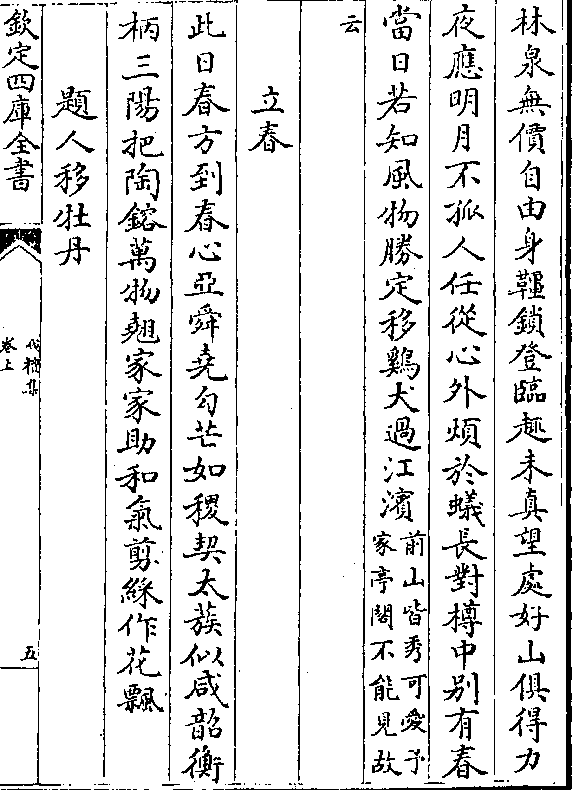 林泉無價自由身韁鎖登臨趣未真望處好山俱得力
夜應明月不孤人任從心外煩於蟻長對樽中别有春
當日若知風物勝定移鷄犬過江濱
前山皆秀可愛予
家亭閣不能見故
云
立春
此日春方到春心亞舜堯勾芒如稷契太蔟似咸韶衡
柄三陽把陶鎔萬物翹家家助和氣剪綵作花飄
題人移牡丹
欽定四庫全書
伐檀集
卷上
五